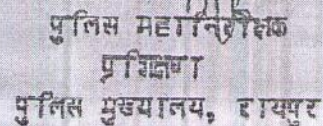 पुलिस महानिरीक्षक
प्रशिक्षण
पुलिस मुख्यालय, रायपुर